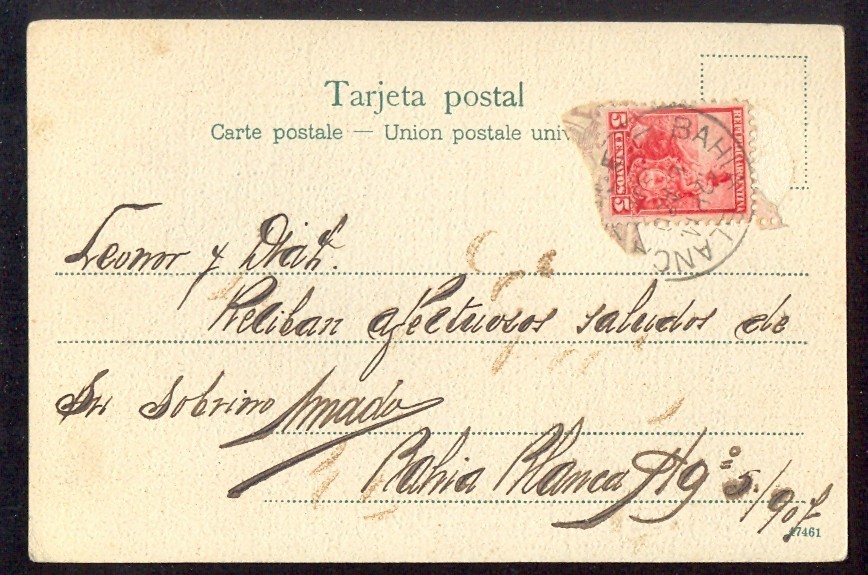 Tarjeta postal
Carte postale — Union postale univ
REPUBLICA ARGENTINA
5 CENTAVOS 5
BAHIA BLANCA
Leonor y
Reciban afectuosos saludos de
Su sobrino Amado
Bahia Blanca Agº 5/907
47461